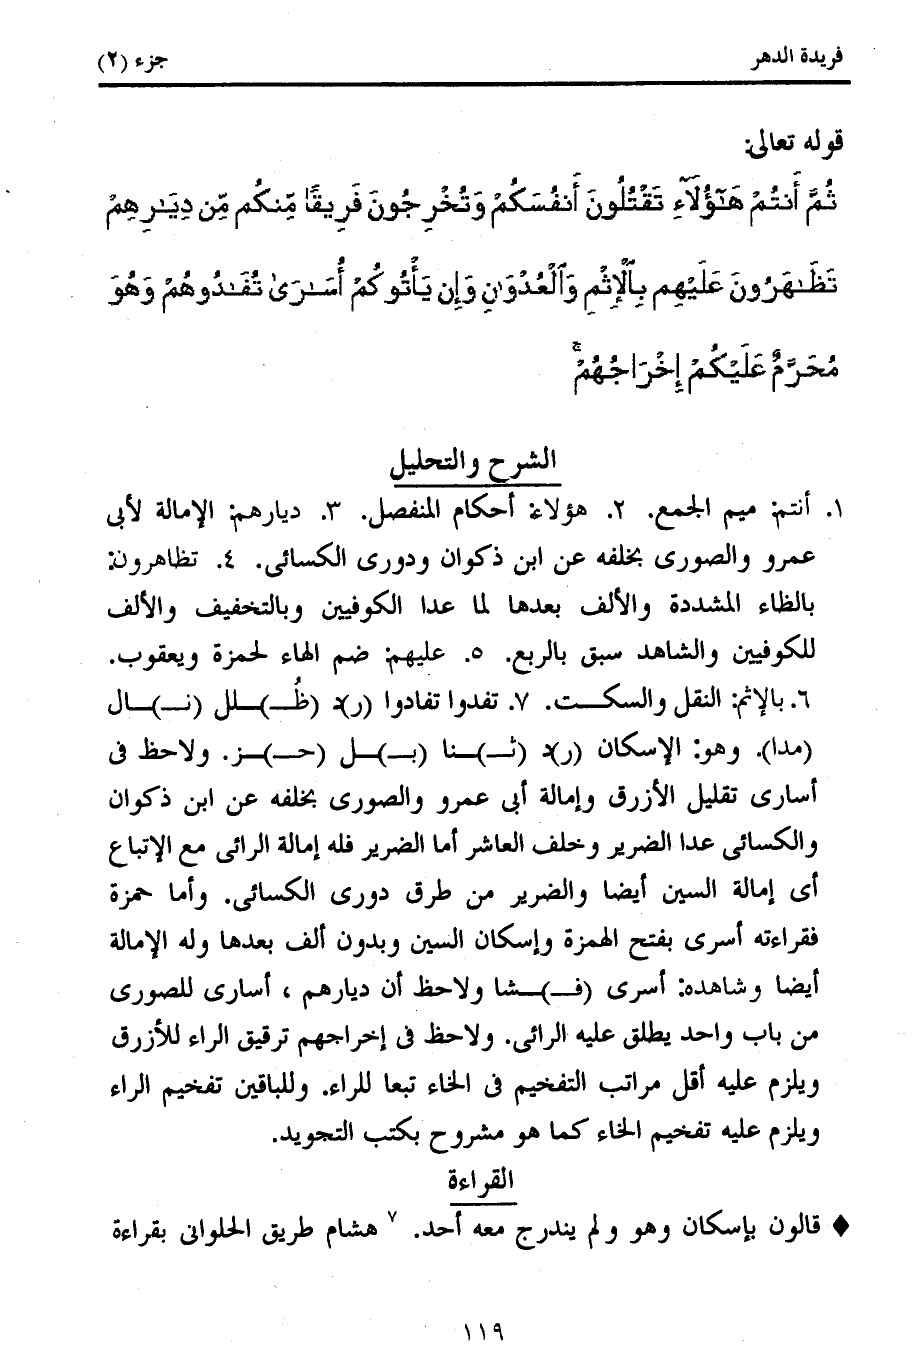 فريدة الدهر
جزء (٢)
قوله تعالى:
ثُمَّ أَنتُمْ هَٰٓؤُلَآءِ تَقْتُلُونَ أَنفُسَكُمْ وَتُخْرِجُونَ فَرِيقًا مِّنكُم مِّن دِيَٰرِهِمْ
تَظَّٰهَرُونَ عَلَيْهِم بِٱلْإِثْمِ وَٱلْعُدْوَٰنِ وَإِن يَأْتُوكُمْ أُسَٰرَىٰ تُفَٰدُوهُمْ وَهُوَ
مُحَرَّمٌ عَلَيْكُمْ إِخْرَاجُهُمْ ۚ
الشرح والتحليل
١. أنتم: ميم الجمع. ٢. هؤلاء: أحكام المنفصل. ٣. ديارهم: الإمالة لأبى
عمرو والصورى بخلفه عن ابن ذكوان ودورى الكسائى. ٤. تظاهرون:
بالظاء المشددة والألف بعدها لما عدا الكوفيين وبالتخفيف والألف
للكوفيين والشاهد سبق بالربع. ٥. عليهم: ضم الهاء لحمزة ويعقوب.
٦. بالإثم: النقل والسكـــت. ٧. تفدوا تفادوا (ر)د (ظُـ)ـلل (نـ)ـال
(مدا). وهو: الإسكان (ر)د (ثـ)ـنا (بـ)ـل (حـ)ـز. ولاحظ فى
أسارى تقليل الأزرق وإمالة أبى عمرو والصورى بخلفه عن ابن ذكوان
والكسائى عدا الضرير وخلف العاشر أما الضرير فله إمالة الرائى مع الإتباع
أى إمالة السين أيضا والضرير من طرق دورى الكسائى. وأما حمزة
فقراءته أسرى بفتح الهمزة وإسكان السين وبدون ألف بعدها وله الإمالة
أيضا وشاهده: أسرى (فـ)ـشا ولاحظ أن ديارهم ، أسارى للصورى
من باب واحد يطلق عليه الرائى. ولاحظ فى إخراجهم ترقيق الراء للأزرق
ويلزم عليه أقل مراتب التفخيم فى الخاء تبعا للراء. وللباقين تفخيم الراء
ويلزم عليه تفخيم الخاء كما هو مشروح بكتب التجويد.
القراءة
♦ قالون بإسكان وهو ولم يندرج معه أحد. ٧ هشام طريق الحلوانى بقراءة
١١٩